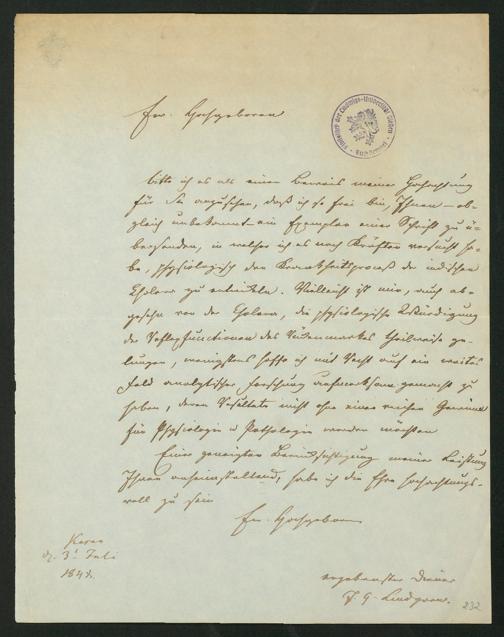 Ew. Hochgeboren
bitte ich es als einen Beweis meiner Hochachtung
für Sie anzusehen, daß ich so frei bin, Ihnen – ob-
gleich unbekannt – ein Exemplar einer Schrift zu ü-
bersenden, in welcher ich es nach Kräften versucht ha-
be, physiologisch den Krankheitsproceß der indischen
Cholera zu entwickeln. Vielleicht ist mir, auch ab-
gesehn von der Cholera, die physiologische Würdigung
der Reflexfunctionen des Rükenmarkes theilweise ge-
lungen, wenigstens hoffe ich mit Recht auf ein weites
Feld analytischer Forschung aufmerksam gemacht zu
haben, deren Resultate nicht ohne einen reichen Gewinn
für Physiologie u Pathologie werden möchten
Einer geneigten Berücksichtigung meiner Leistung
Ihnen anheimstellend, habe ich die Ehre hochachtungs-
voll zu sein
Ew. Hochgeboren
Kasan
d. 3t Juli
184
ergebenster Diener
F. G. Lindgren.
232
Bibliothek der Ludwigs-Universität Giessen